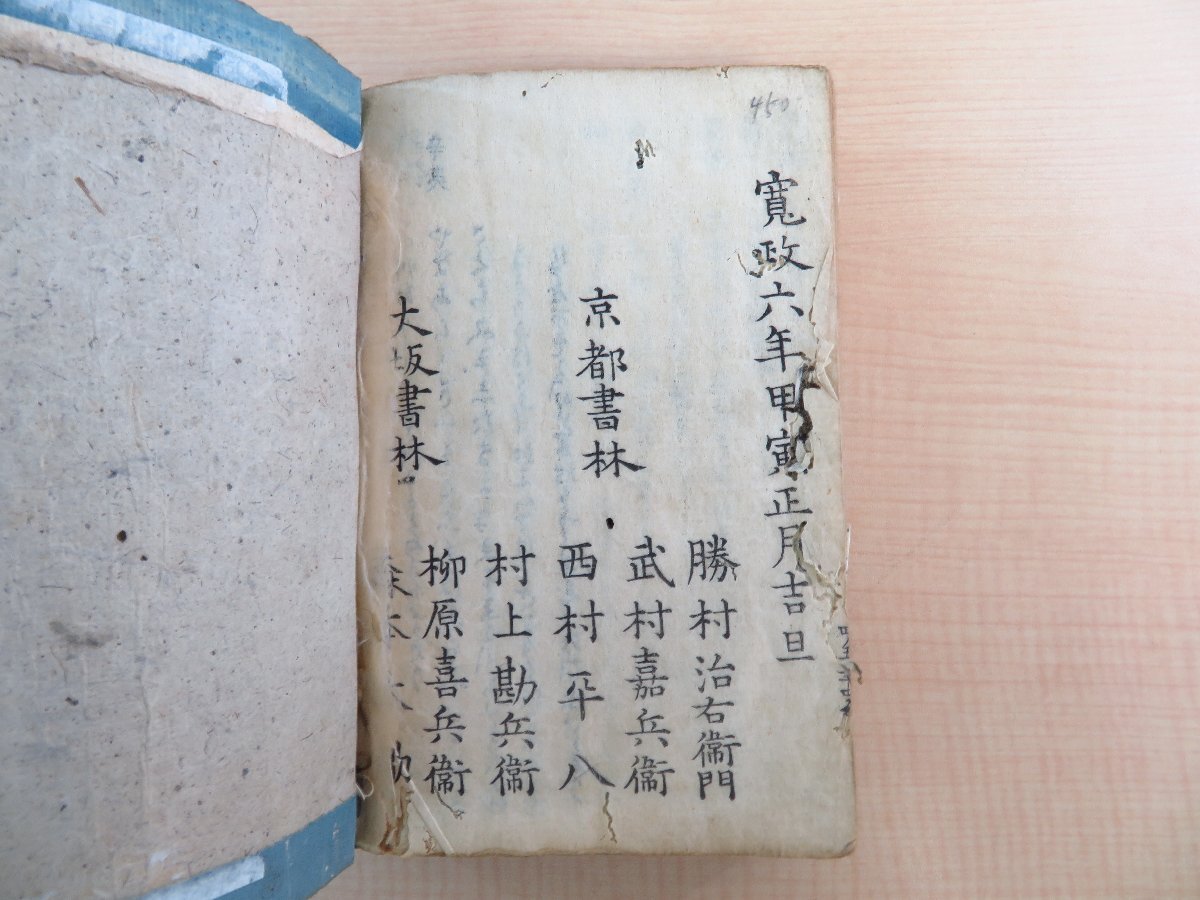 450
寛政六年甲寅正月吉旦
京都書林
勝村治右衛門
武村嘉兵衛
西村平八
村上勘兵衛
大坂書林
柳原喜兵衛